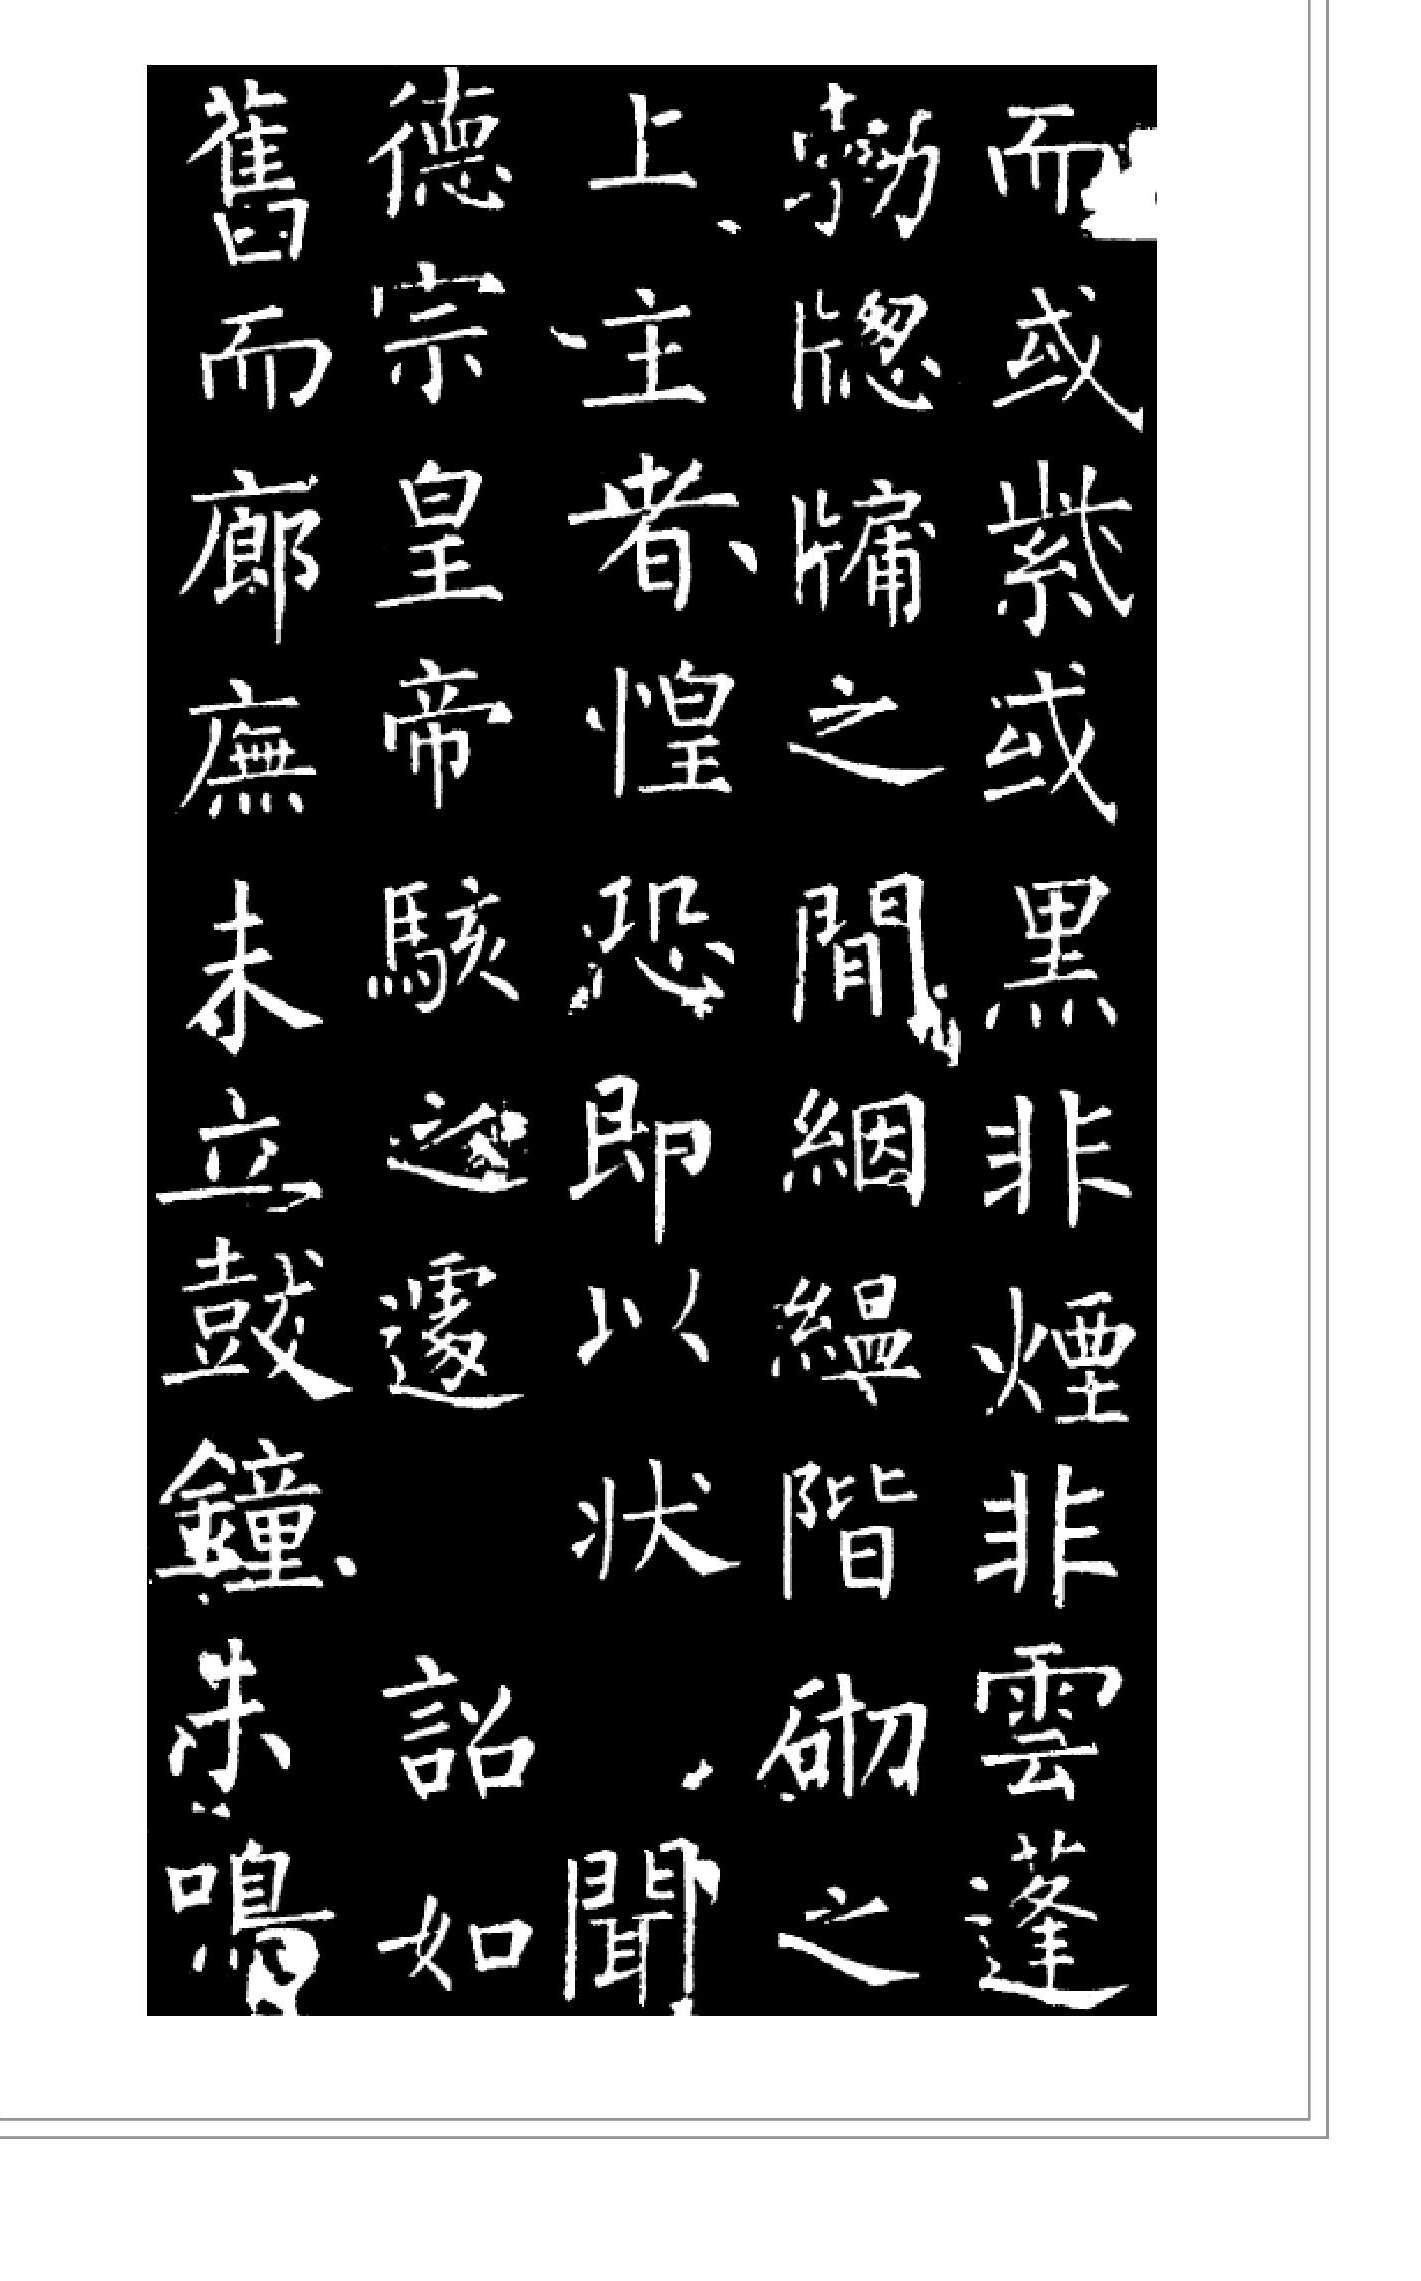 而或紫或黑非煙非雲蓬
勃牎牖之間絪緼階砌之
上主者惶恐即以状聞
德宗皇帝駭之遽詔如
舊而廊廡未立鼓鐘朱鳴